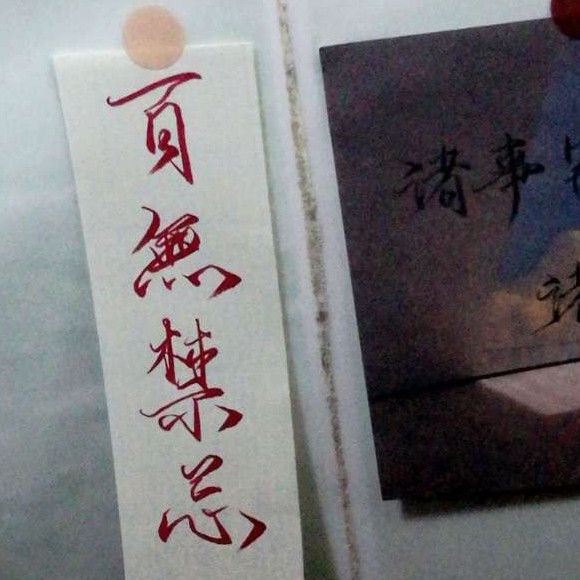 百無禁忌
诸事
诸